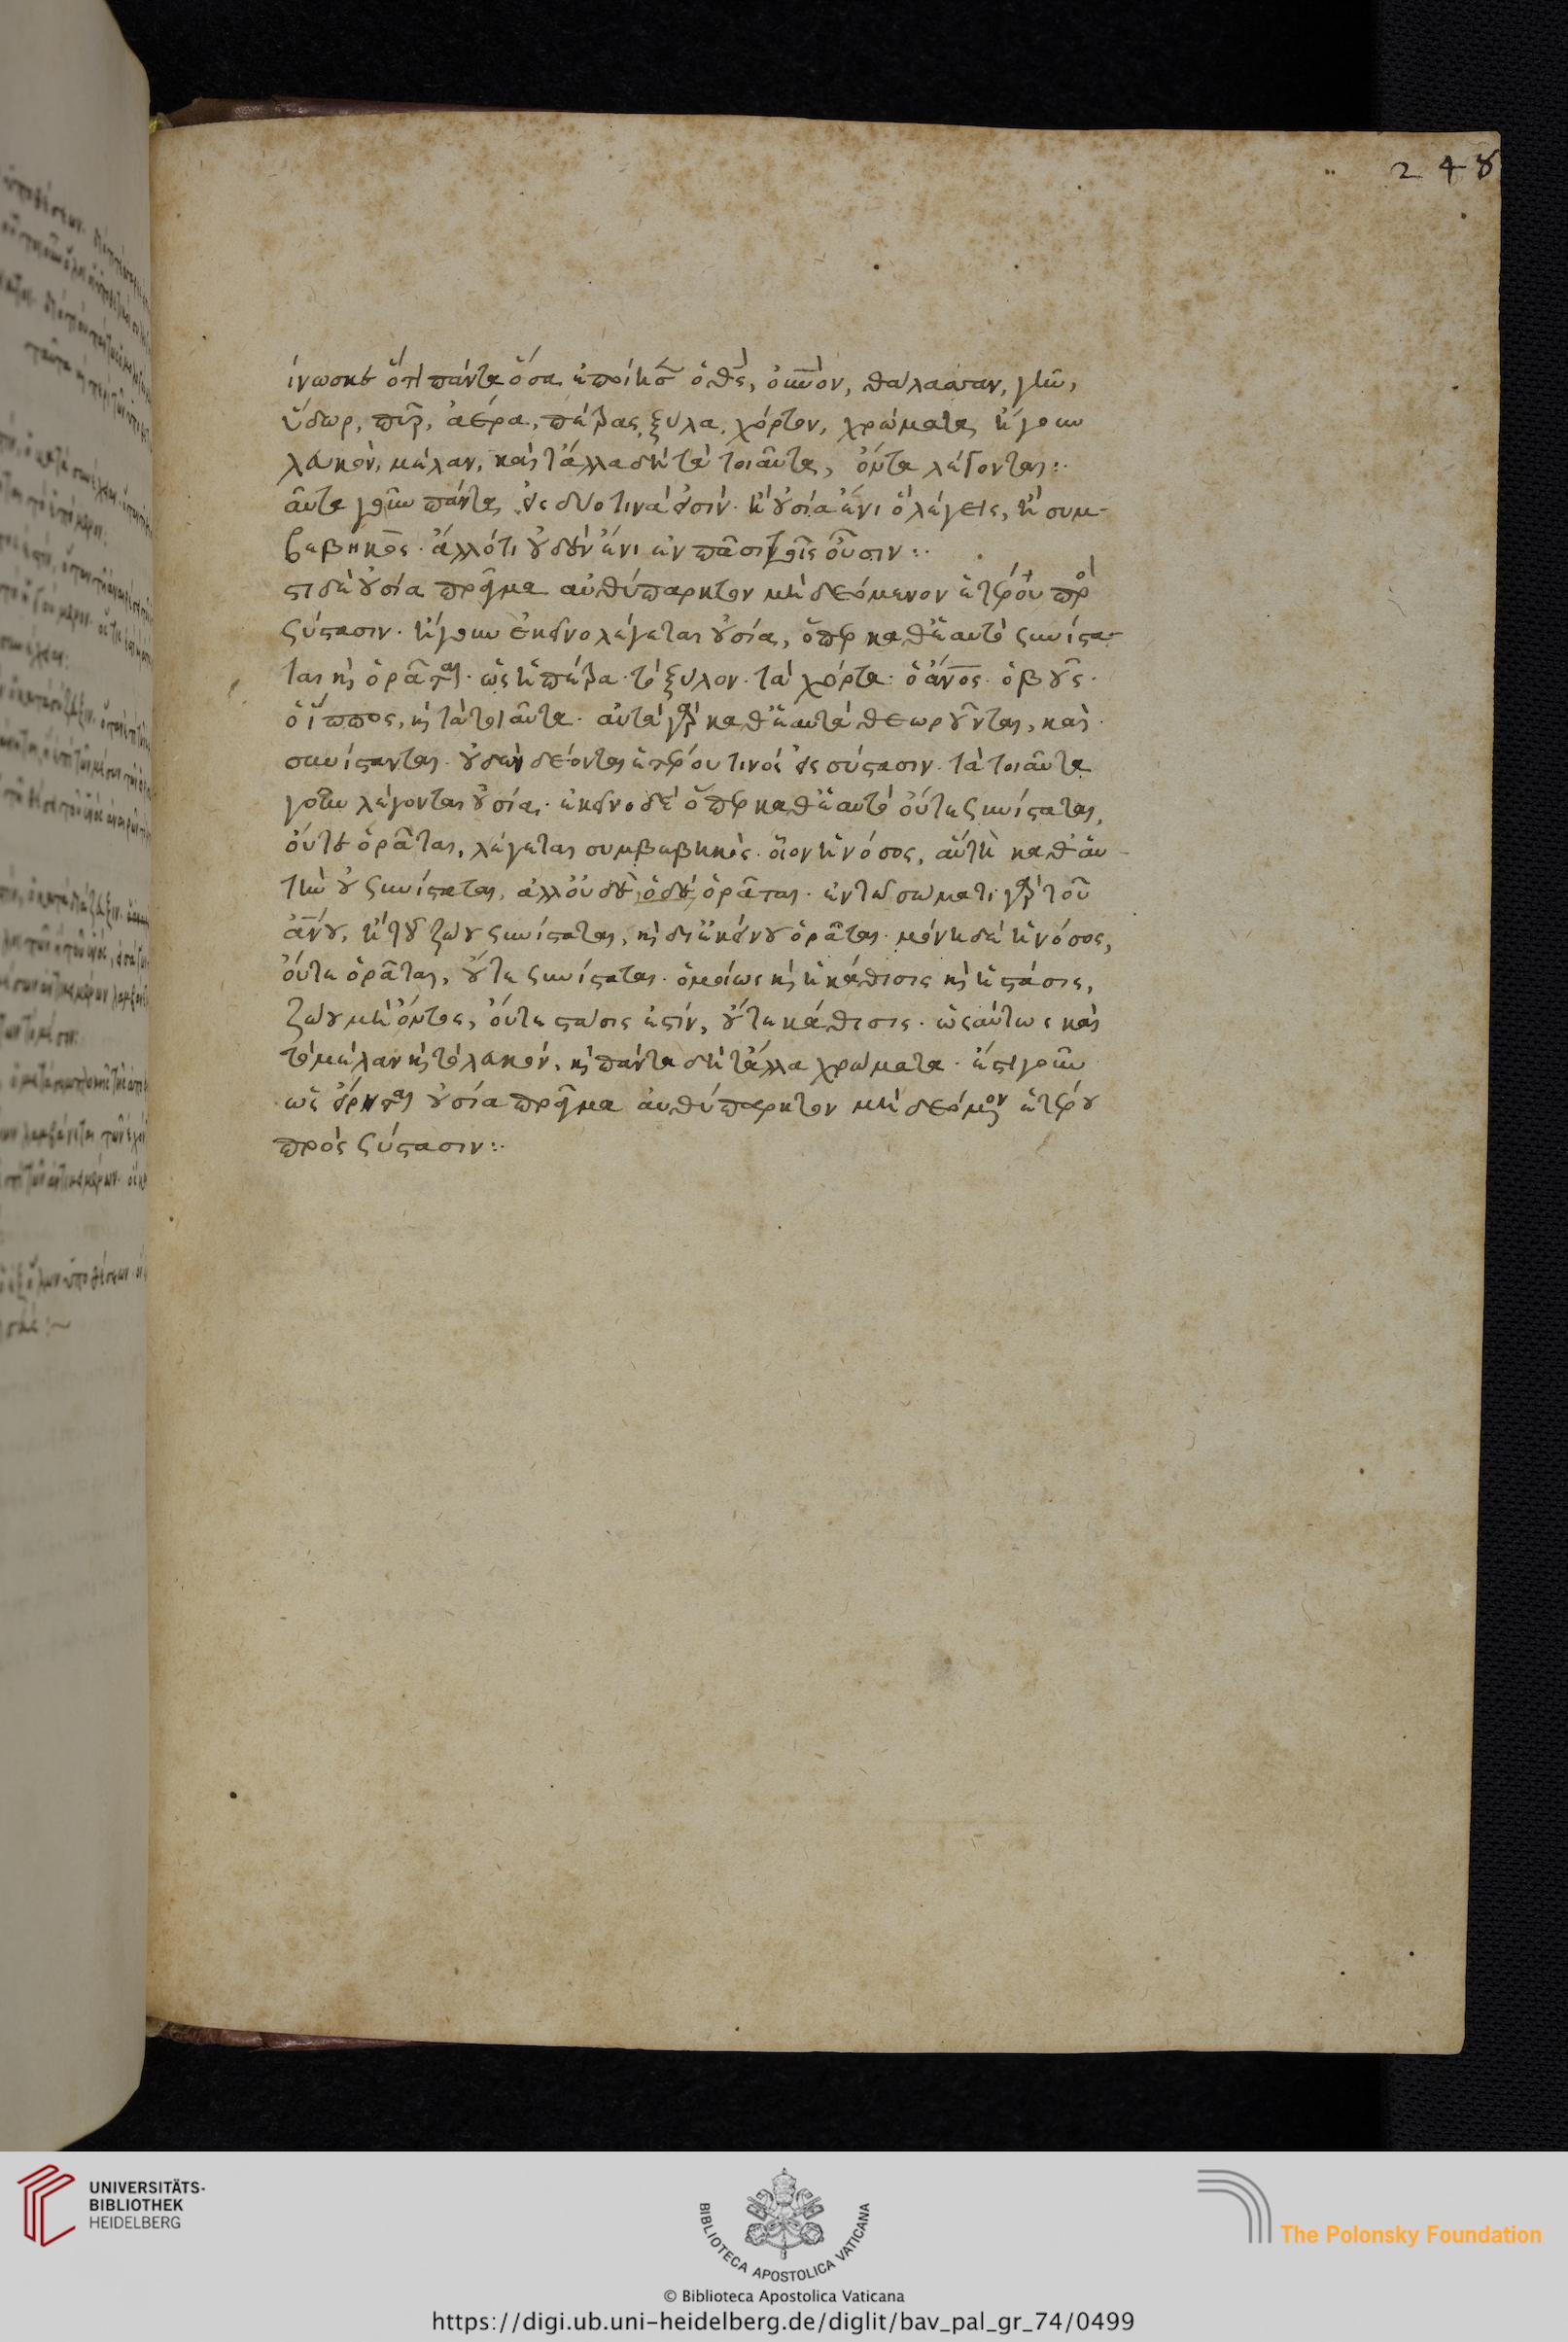 248
ίνωσκε ὅτι πάντα ὅσα ἐποίησεν ὁ θς, οὐνον, θάλασσαν, γῆν,
ὕδωρ, πῦρ, ἀέρα, πέτρας, ξύλα, χόρτον, χρώματα, ἤγουν
λευκὸν, μέλαν, καὶ τἄλλα δὴ τὰ τοιαῦτα, ὄντα λέγονται:.
αῦτα γοῦν πάντα, εἰς δύο τινά εἰσίν. ἢ οὐσία ἔνι ὃ λέγεις, ἢ συμ-
βεβηκὸς. ἄλλό τι οὐδὲν ἔνι ἐν πᾶσι τοῖς οὖσιν:.
στι δὲ οὐσία πρᾶγμα αὐθύπαρκτον μὴ δεόμενον ἑτέρου πρὸ
σύστασιν. ἤγουν ἐκεῖνο λέγεται οὐσία, ὅπερ καθ' ἑαυτὸ συνίστα-
ται κὶ ὁρᾶται. ὡς ἡ πέτρα. τὸ ξύλον. τὰ χόρτα. ὁ ἄνος. ὁ βοῦς.
ὁ ἵππος, κὶ τὰ τοιαῦτα. αὐτὰ γὰρ καθ' ἑαυτὰ θεωροῦνται, καὶ
συνίστανται. οὐδὲν δέονται ἑτέρου τινός εἰς σύστασιν. τὰ τοιαῦτα
γοῦν λέγονται οὐσίαι. ἐκεῖνο δὲ ὅπερ καθ' ἑαυτὸ οὔτε συνίσταται,
οὔτε ὁρᾶται, λέγεται συμβεβηκὸς. οἷον ἡ νόσος, αὕτη καθ' αὑ-
τὴν οὐ συνίσταται, ἀλλ' οὐδὲ ὁρᾶται. ἐν τῷ σώματι γὰρ τοῦ
ἀνου, ἢ τοῦ ζώου συνίσταται, κὶ δι' ἐκείνου ὁρᾶται. μόνη δὲ ἡ νόσος,
οὔτε ὁρᾶται, οὔτε συνίσταται. ὁμοίως κὶ ἡ κάθισις κὶ ἡ στάσις,
ζώου μὴ ὄντος, οὔτε στάσις ἐστίν, οὔτε κάθισις. ὡσαύτως καὶ
τὸ μέλαν κὶ τὸ λευκόν, κὶ πάντα δὴ τἄλλα χρώματα. ἔστι γοῦν
ὡς εἴρηται οὐσία πρᾶγμα αὐθύπαρκτον μὴ δεόμενον ἑτέρου
πρὸς σύστασιν:.
UNIVERSITÄTS-
BIBLIOTHEK
HEIDELBERG
BIBLIOTECA APOSTOLICA VATICANA
The Polonsky Foundation
© Biblioteca Apostolica Vaticana
https://digi.ub.uni-heidelberg.de/diglit/bav_pal_gr_74/0499